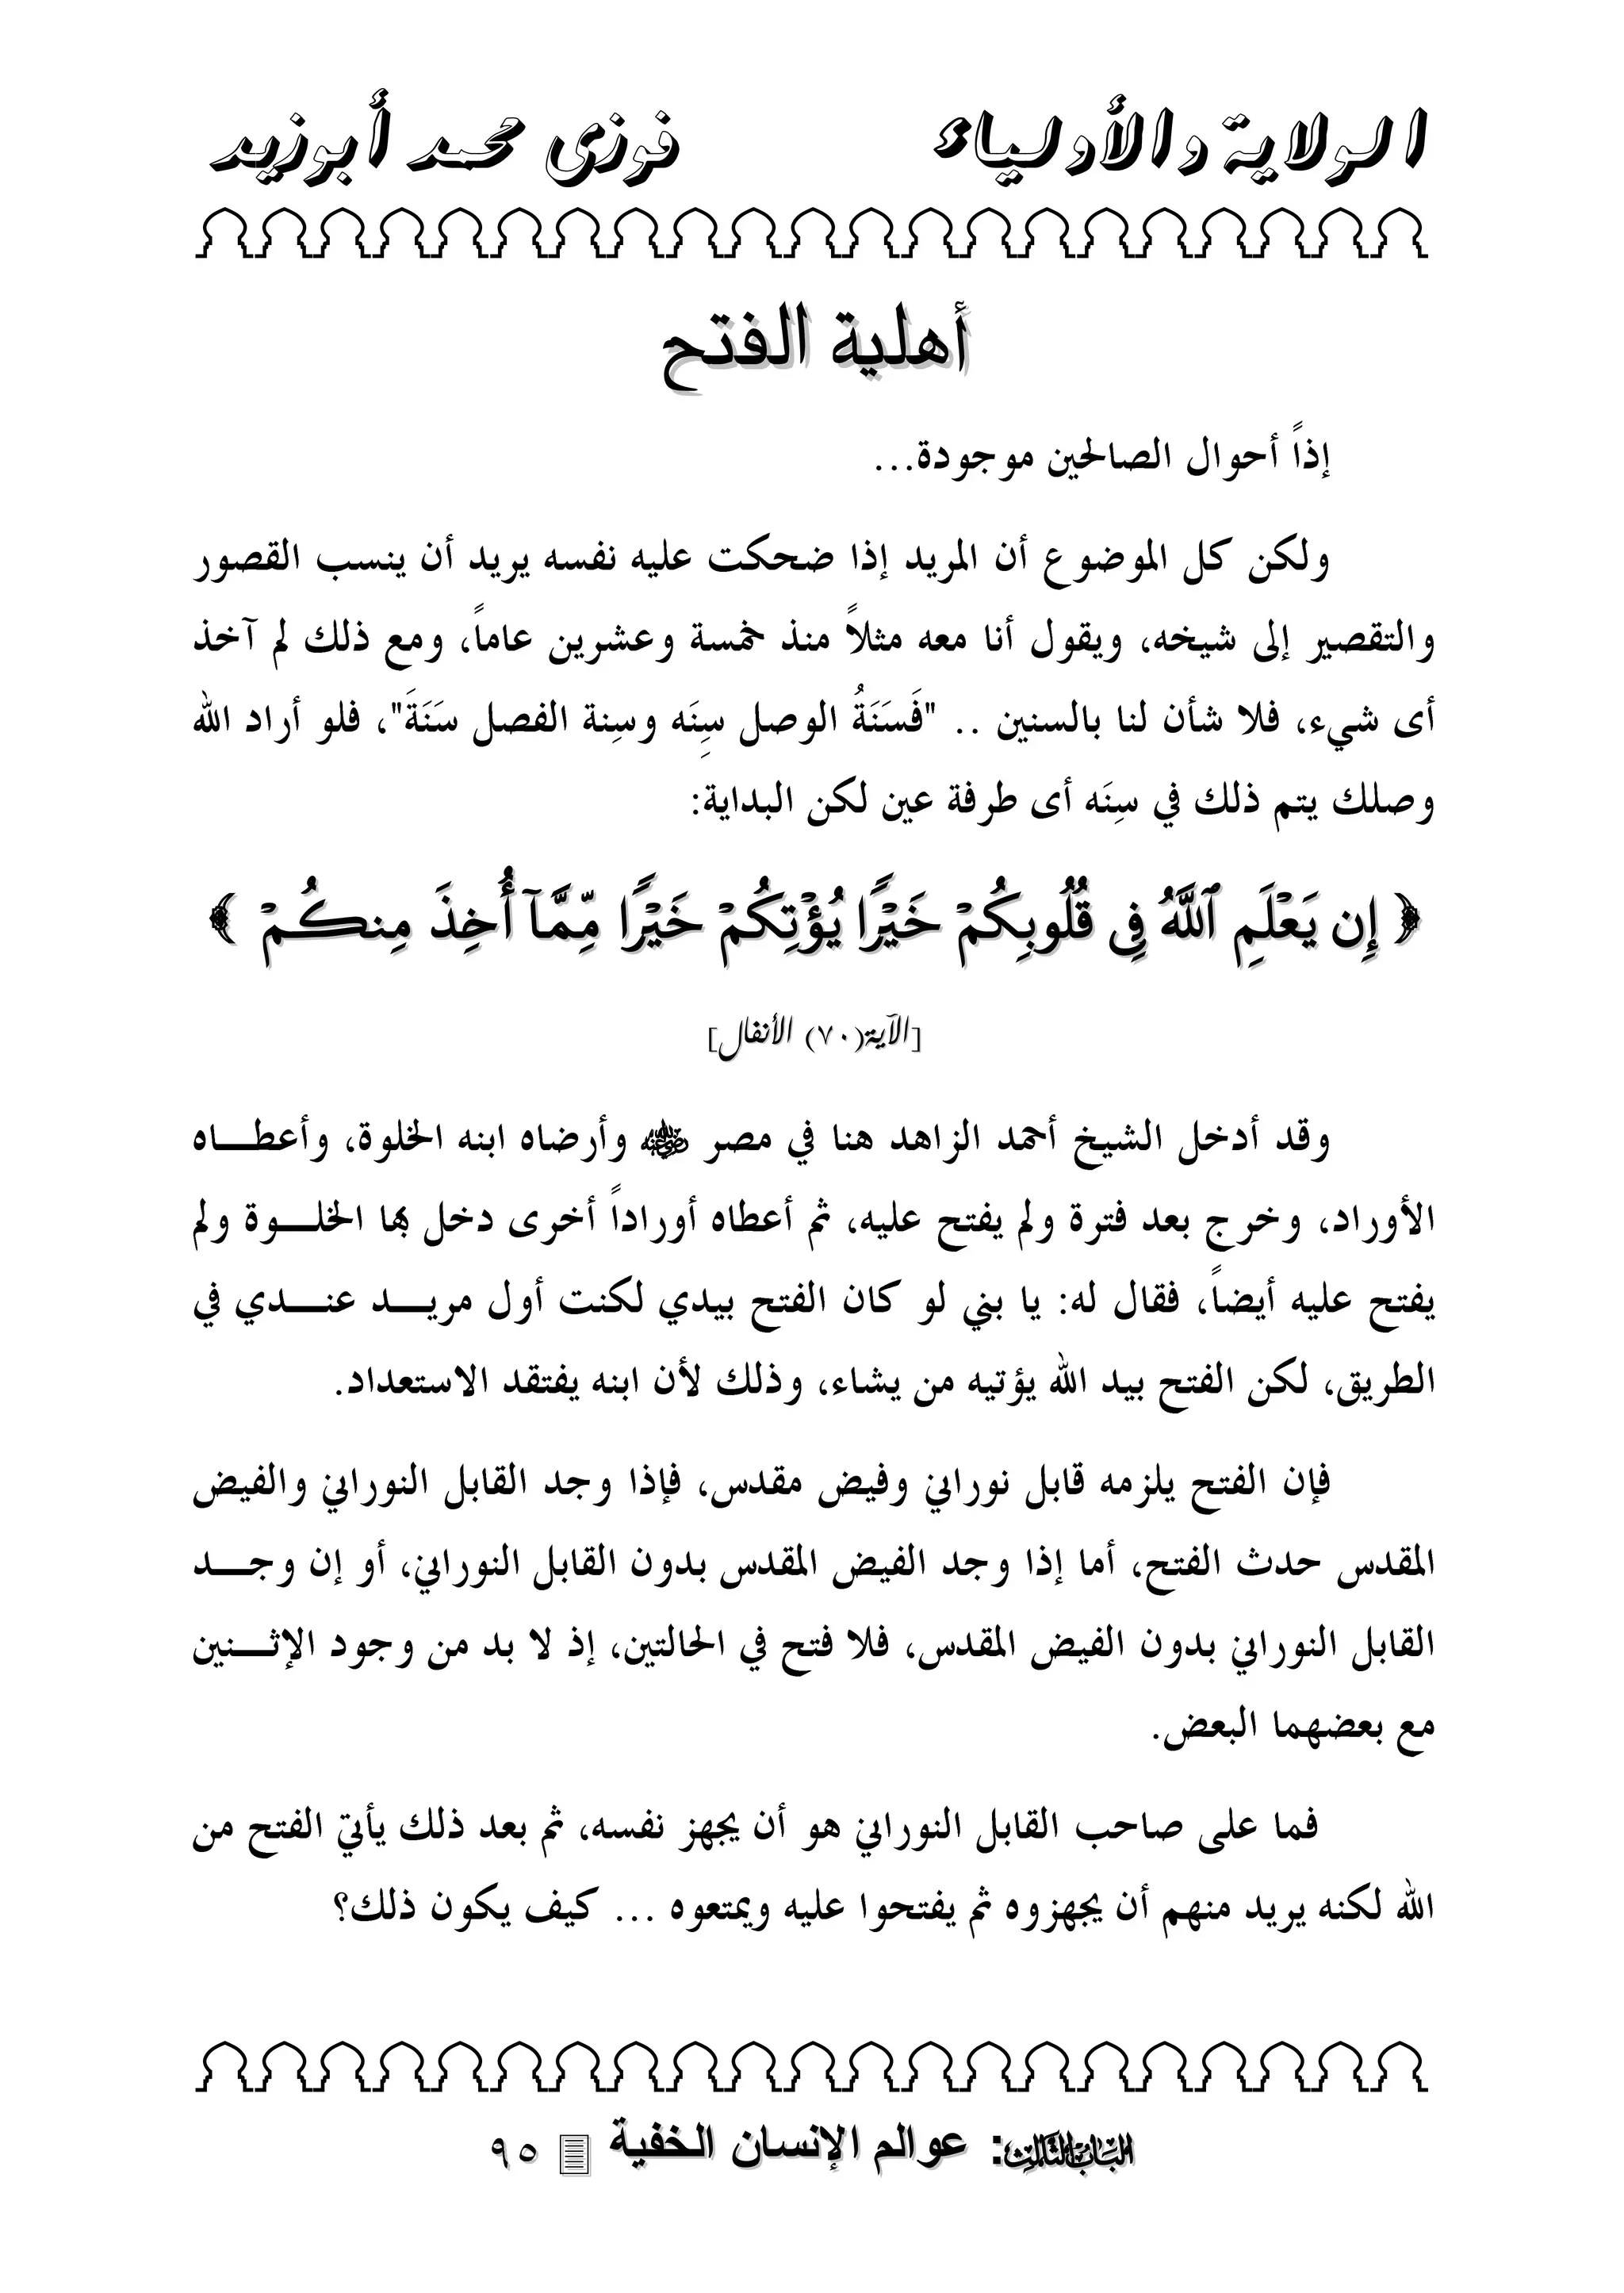 الولاية والأولياء فوزى محمد أبوزيد
أهلية الفتح
إذاً أحوال الصالحين موجودة...
ولكن كل الموضوع أن المريد إذا ضحكت عليه نفسه يريد أن ينسب القصور
والتقصير إلى شيخه، ويقول أنا معه مثلاً منذ خمسة وعشرين عاماً، ومع ذلك لم آخذ
أى شيء، فلا شأن لنا بالسنين .. "فَسَنَةُ الوصل سِنَه وسِنة الفصل سَنَةَ"، فلو أراد الله
وصلك يتم ذلك في سِنَه أى طرفة عين لكن البداية:
﴿ إِن يَعْلَمِ ٱللَّهُ فِى قُلُوبِكُمْ خَيْرًا يُؤْتِكُمْ خَيْرًا مِّمَّآ أُخِذَ مِنكُمْ ﴾
[الآية(٧٠) الأنفال]
وقد أدخل الشيخ أحمد الزاهد هنا في مصر رضي الله عنه وأرضاه ابنه الخلوة، وأعطـــاه
الأوراد، وخرج بعد فترة ولم يفتح عليه، ثم أعطاه أوراداً أخرى دخل بها الخلـــوة ولم
يفتح عليه أيضاً، فقال له: يا بني لو كان الفتح بيدي لكنت أول مريـــد عنـــدي في
الطريق، لكن الفتح بيد الله يؤتيه من يشاء، وذلك لأن ابنه يفتقد الاستعداد.
فإن الفتح يلزمه قابل نوراني وفيض مقدس، فإذا وجد القابل النوراني والفيض
المقدس حدث الفتح، أما إذا وجد الفيض المقدس بدون القابل النوراني، أو إن وجـــد
القابل النوراني بدون الفيض المقدس، فلا فتح في الحالتين، إذ لا بد من وجود الإثـــنين
مع بعضهما البعض.
فما على صاحب القابل النوراني هو أن يجهز نفسه، ثم بعد ذلك يأتيّ الفتح من
الله لكنه يريد منهم أن يجهزوه ثم يفتحوا عليه ويمتعوه ... كيف يكون ذلك؟
الباب الثالث: عوالم الإنسان الخفية ٩٥